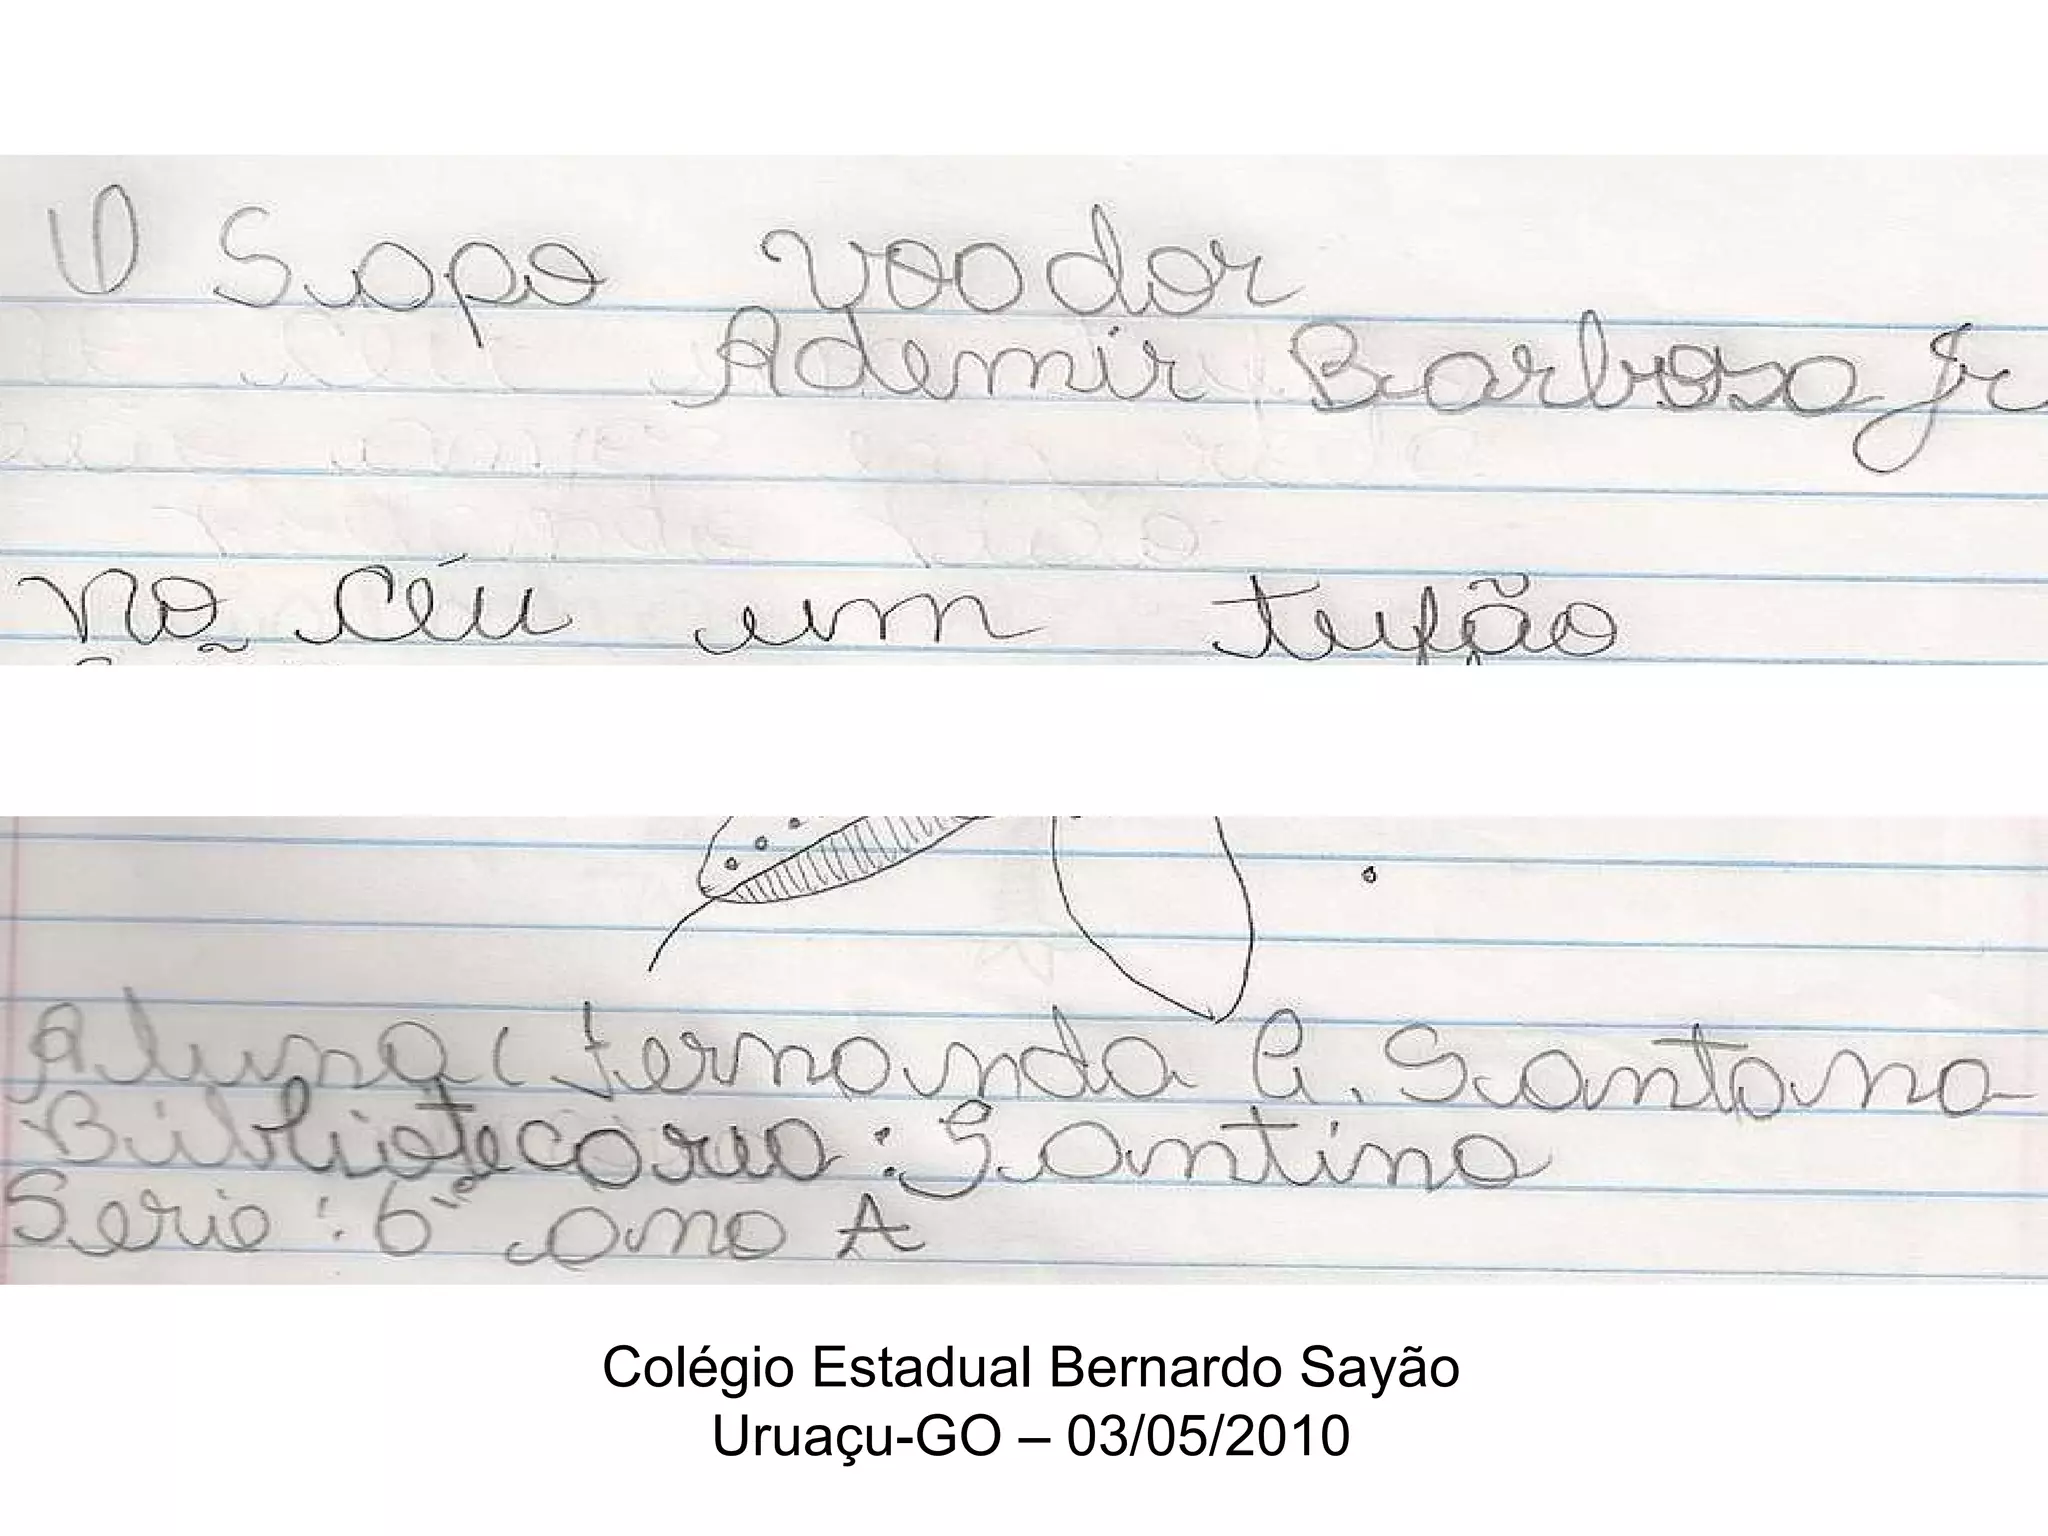 O Sapo Voador
Ademir Barbosa Jr
No céu um tufão
Aluna: Fernanda G. Santana
Bibliotecaria: Santina
Serie: 6º ano A
Colégio Estadual Bernardo Sayão
Uruaçu-GO – 03/05/2010